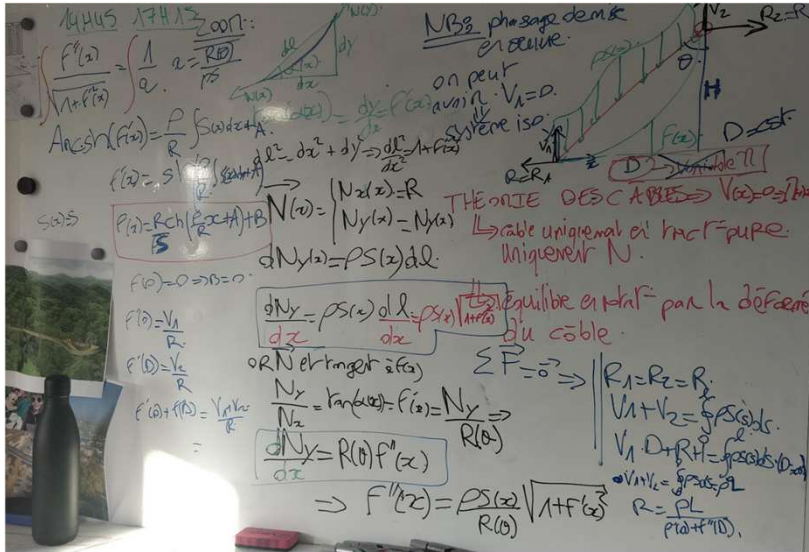 14H45 17H15
f''(x) / √1+f'²(x) = 1/a a = R(θ)/ρS
Argsh(f'(x)) = ρ/R ∫S(x)dx+A
S(x)=S
f(x)=R/ρS ch(ρS/R x+A)+B
f(0)=0 ⇒ B=0
f'(0)=V1/R
f'(D)=V2/R
f'(0)+f'(D)=V1+V2/R
=
dl
dy
dx
N(x)
tan(α(x)) = dy/dx = f'(x)
dl²=dx²+dy² ⇒ dl²/dx²=1+f'(x)²
N(x)= { Nx(x)=R
Ny(x)=Ny(x)
dNy(x)=ρS(x)dl
dNy/dx=ρS(x) dl/dx=ρS(x)√1+f'(x)²
OR N et tangent à f(x)
Ny/Nx=tan(α(x))=f'(x)=Ny/R(θ) ⇒
dNy/dx=R(θ)f''(x)
⇒ f''(x)=ρS(x)/R(θ) √1+f'(x)²
NB: phasage de mise
en œuvre.
on peut
avoir V1=0
système iso
V2
R2=
ρS(x)
θ
H
f(x)
V1
x
R=R1
D=cst
D variable
THEORIE DES CABLES ⇒ V(x)=0 ⇒
câble uniquement en tract° pure
uniquement N.
équilibre en rotat° par la déformée
du câble.
ΣF=0 ⇒
R1=R2=R
V1+V2=∫ρS(s)ds.
V1·D+R·H=∫ρS(s)ds·(D-x)
V1+V2=∫ρSds=ρL
R=ρL/f'(0)+f'(D).